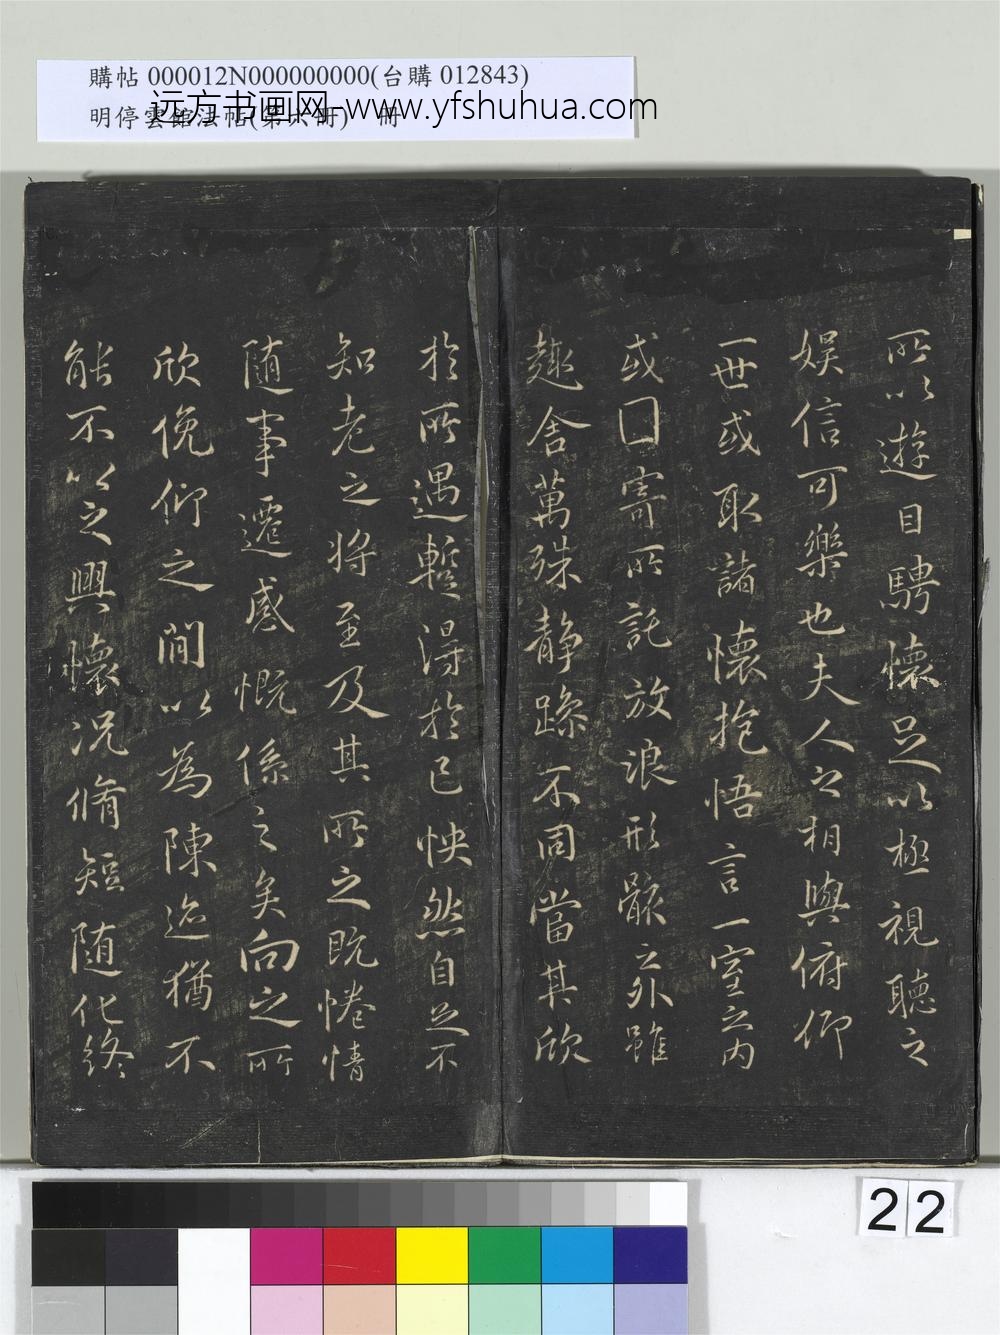 購帖 000012N000000000(台購 012843)
明停雲館法帖(第六冊) 冊
远方书画网-www.yfshuhua.com
所以遊目騁懷足以極視聽之
娛信可樂也夫人之相與俯仰
一世或取諸懷抱悟言一室之內
或因寄所託放浪形骸之外雖
趣舍萬殊靜躁不同當其欣
於所遇蹔得於己怏然自足不
知老之將至及其所之既惓情
隨事遷感慨係之矣向之所
欣俛仰之間以為陳迹猶不
能不以之興懷況脩短隨化終
22